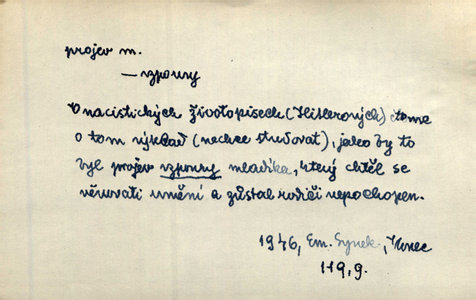 projev m.
— vzpoury
V nacistických životopisech (Hitlerových) čteme
o tom výklad (nechce studovat), jako by to
byl projev vzpoury mladíka, který chtěl se
věnovati umění a zůstal rodiči nepochopen.
1946, Em. Synek, Konec
119, 9.